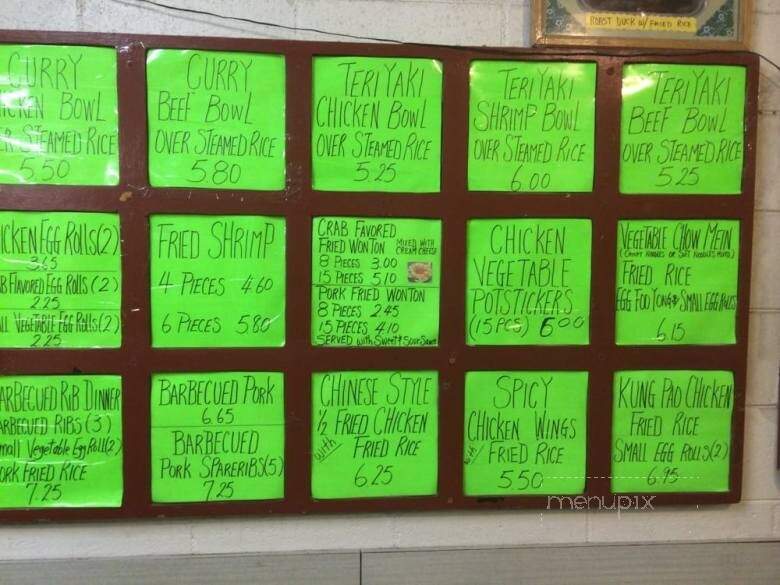 ROAST DUCK W/ FRIED RICE
CURRY
CHICKEN BOWL
OVER STEAMED RICE
5.50
CURRY
BEEF BOWL
OVER STEAMED RICE
5.80
TERIYAKI
CHICKEN BOWL
OVER STEAMED RICE
5.25
TERIYAKI
SHRIMP BOWL
OVER STEAMED RICE
6.00
TERIYAKI
BEEF BOWL
OVER STEAMED RICE
5.25
ICKEN EGG ROLLS (2)
3.65
B FLAVORED EGG ROLLS (2)
2.25
LL VEGETABLE EGG ROLLS (2)
2.25
FRIED SHRIMP
4 PIECES 4.60
6 PIECES 5.80
CRAB FAVORED
FRIED WONTON MIXED WITH CREAM CHEESE
8 PIECES 3.00
15 PIECES 5.10
PORK FRIED WONTON
8 PIECES 2.45
15 PIECES 4.10
SERVED with SWEET & SOUR SAUCE
CHICKEN
VEGETABLE
POTSTICKERS
(15 PCS) 6.00
VEGETABLE CHOW MEIN
(CRISPY NOODLES OR SOFT NOODLES MIXED)
FRIED RICE
EGG FOO YONG & SMALL EGG ROLLS
6.15
ARBECUED RIB DINNER
ARBECUED RIBS (3)
mall Vegetable Egg Roll (2)
ORK FRIED RICE
7.25
BARBECUED PORK
6.65
BARBECUED
PORK SPARERIBS (5)
7.25
CHINESE STYLE
1/2 FRIED CHICKEN
with FRIED RICE
6.25
SPICY
CHICKEN WINGS
with FRIED RICE
5.50
KUNG PAO CHICKEN
FRIED RICE
SMALL EGG ROLLS (2)
6.95
menupix